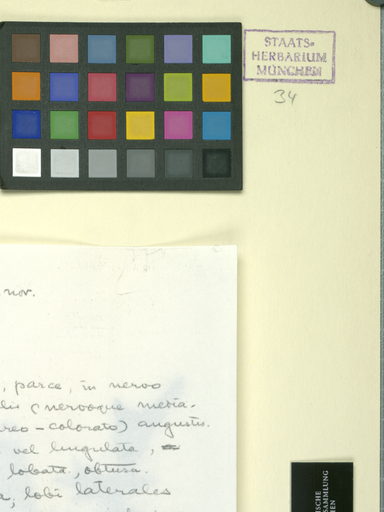 STAATS-
HERBARIUM
MÜNCHEN
34
nov.
, parce, in nervo
(nervoque media-
reo-colorato) angustis.
vel lingulata,
lobata, obtusa.
a, lobi laterales
ISCHE
SAMMLUNG
EN